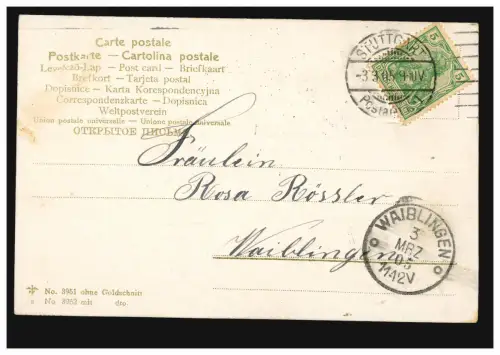 Carte postale
Postkarte — Cartolina postale
Levelező-Lap — Post card — Briefkaart
Brefkort — Tarjeta postal
Dopisnice — Karta Korespondencyjna
Correspondenzkarte — Dopisnica
Weltpostverein
Union postale universelle — Unione postale universale
ОТКРЫТОЕ ПИСЬМО
STUTTGART
-3.3.05.9-10V
5
5
Fräulein
Rosa Rössler
Waiblingen
WAIBLINGEN
3
MRZ
05
11-12V
No. 8951 ohne Goldschnitt
No. 8952 mit dto.